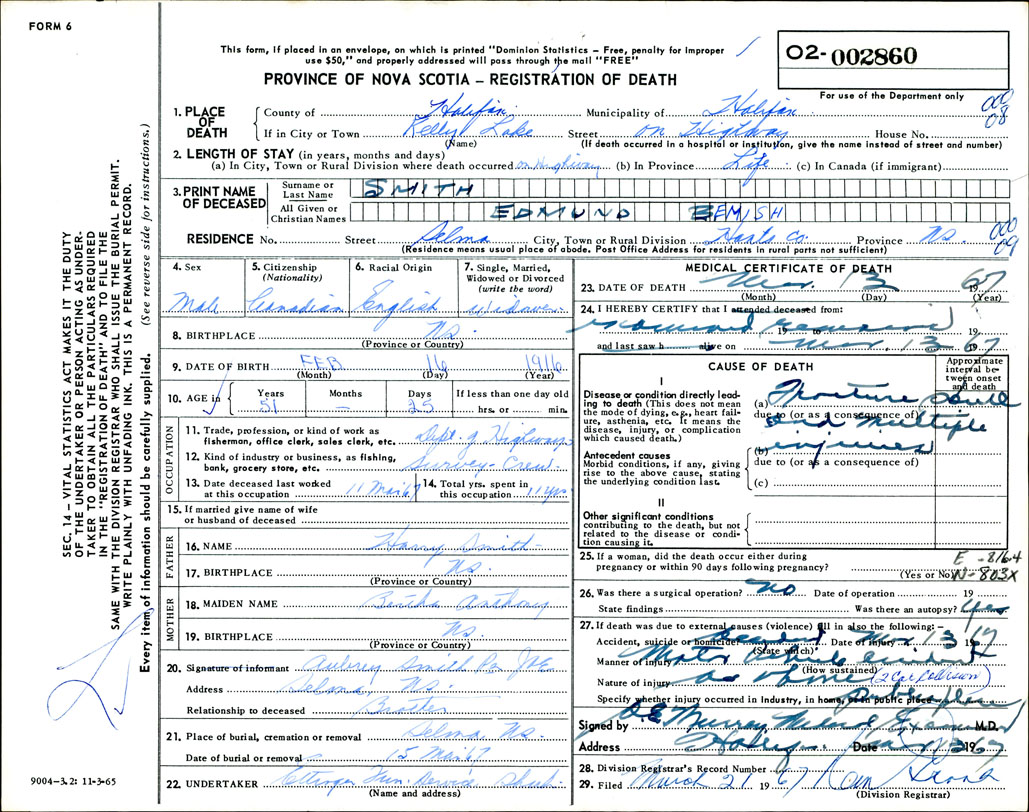 FORM 6
This form, if placed in an envelope, on which is printed "Dominion Statistics – Free, penalty for improper
use $50," and properly addressed will pass through the mail "FREE"
PROVINCE OF NOVA SCOTIA – REGISTRATION OF DEATH
02-002860
For use of the Department only
000
08
SEC. 14 – VITAL STATISTICS ACT MAKES IT THE DUTY
OF THE UNDERTAKER OR PERSON ACTING AS UNDER-
TAKER TO OBTAIN ALL THE PARTICULARS REQUIRED
IN THE "REGISTRATION OF DEATH" AND TO FILE THE
SAME WITH THE DIVISION REGISTRAR WHO SHALL ISSUE THE BURIAL PERMIT.
WRITE PLAINLY WITH UNFADING INK. THIS IS A PERMANENT RECORD.
Every item of information should be carefully supplied. (See reverse side for instructions.)
1. PLACE OF DEATH
County of Halifax Municipality of Halifax
If in City or Town Kelly Lake Street on Highway House No.
(Name) (If death occurred in a hospital or institution, give the name instead of street and number)
2. LENGTH OF STAY (in years, months and days)
(a) In City, Town or Rural Division where death occurred on Highway (b) In Province Life (c) In Canada (if immigrant)
3. PRINT NAME OF DECEASED
Surname or Last Name SMITH
All Given or Christian Names EDMUND BEMISH
RESIDENCE No. Street Selma City, Town or Rural Division Hants Co. Province N.S.
000
09
(Residence means usual place of abode. Post Office Address for residents in rural parts not sufficient)
4. Sex
Male
5. Citizenship (Nationality)
Canadian
6. Racial Origin
English
7. Single, Married, Widowed or Divorced (write the word)
Widower
8. BIRTHPLACE N.S.
(Province or Country)
9. DATE OF BIRTH FEB 16 1916
(Month) (Day) (Year)
10. AGE in Years 51 Months – Days 25 If less than one day old hrs. or min.
OCCUPATION
11. Trade, profession, or kind of work as fisherman, office clerk, sales clerk, etc. Dept. of Highways
12. Kind of industry or business, as fishing, bank, grocery store, etc. Survey-Crew
13. Date deceased last worked at this occupation 11 Mar 67
14. Total yrs. spent in this occupation 11 yrs
15. If married give name of wife or husband of deceased
FATHER
16. NAME Harry Smith
17. BIRTHPLACE N.S.
(Province or Country)
MOTHER
18. MAIDEN NAME Bertha Anthony
19. BIRTHPLACE N.S.
(Province or Country)
20. Signature of informant Aubrey Smith
Address Selma, N.S.
Relationship to deceased Brother
21. Place of burial, cremation or removal Selma, N.S.
Date of burial or removal 15 Mar 67
22. UNDERTAKER Ettinger Fun. Service
(Name and address)
9004–3.2: 11-3-65
MEDICAL CERTIFICATE OF DEATH
23. DATE OF DEATH Mar. 13 1967
(Month) (Day) (Year)
24. I HEREBY CERTIFY that I attended deceased from:
examined remains 19 19
and last saw h alive on Mar. 13 1967
CAUSE OF DEATH
Approximate interval between onset and death
I
Disease or condition directly leading to death (This does not mean the mode of dying, e.g., heart failure, asthenia, etc. It means the disease, injury, or complication which caused death.)
(a) Fracture Skull
due to (or as a consequence of)
and Multiple
Antecedent causes
Morbid conditions, if any, giving rise to the above cause, stating the underlying condition last.
(b) injuries
due to (or as a consequence of)
(c)
II
Other significant conditions
contributing to the death, but not related to the disease or condition causing it.
25. If a woman, did the death occur either during pregnancy or within 90 days following pregnancy?
(Yes or No)
E-816.4
N-803X
26. Was there a surgical operation? No Date of operation 19
State findings Was there an autopsy? Yes
27. If death was due to external causes (violence) fill in also the following:–
Accident, suicide or homicide? Accident Date of injury Mar 13 1967
(State which)
Manner of injury Motor Vehicle Accident
(How sustained)
Nature of injury as above (2 Car Collision)
Specify whether injury occurred in Industry, in home, or in public place public place
Signed by Murray Medical Examiner M.D.
Address Date Mar 13 1967
28. Division Registrar's Record Number
29. Filed March 21 1967
(Division Registrar)